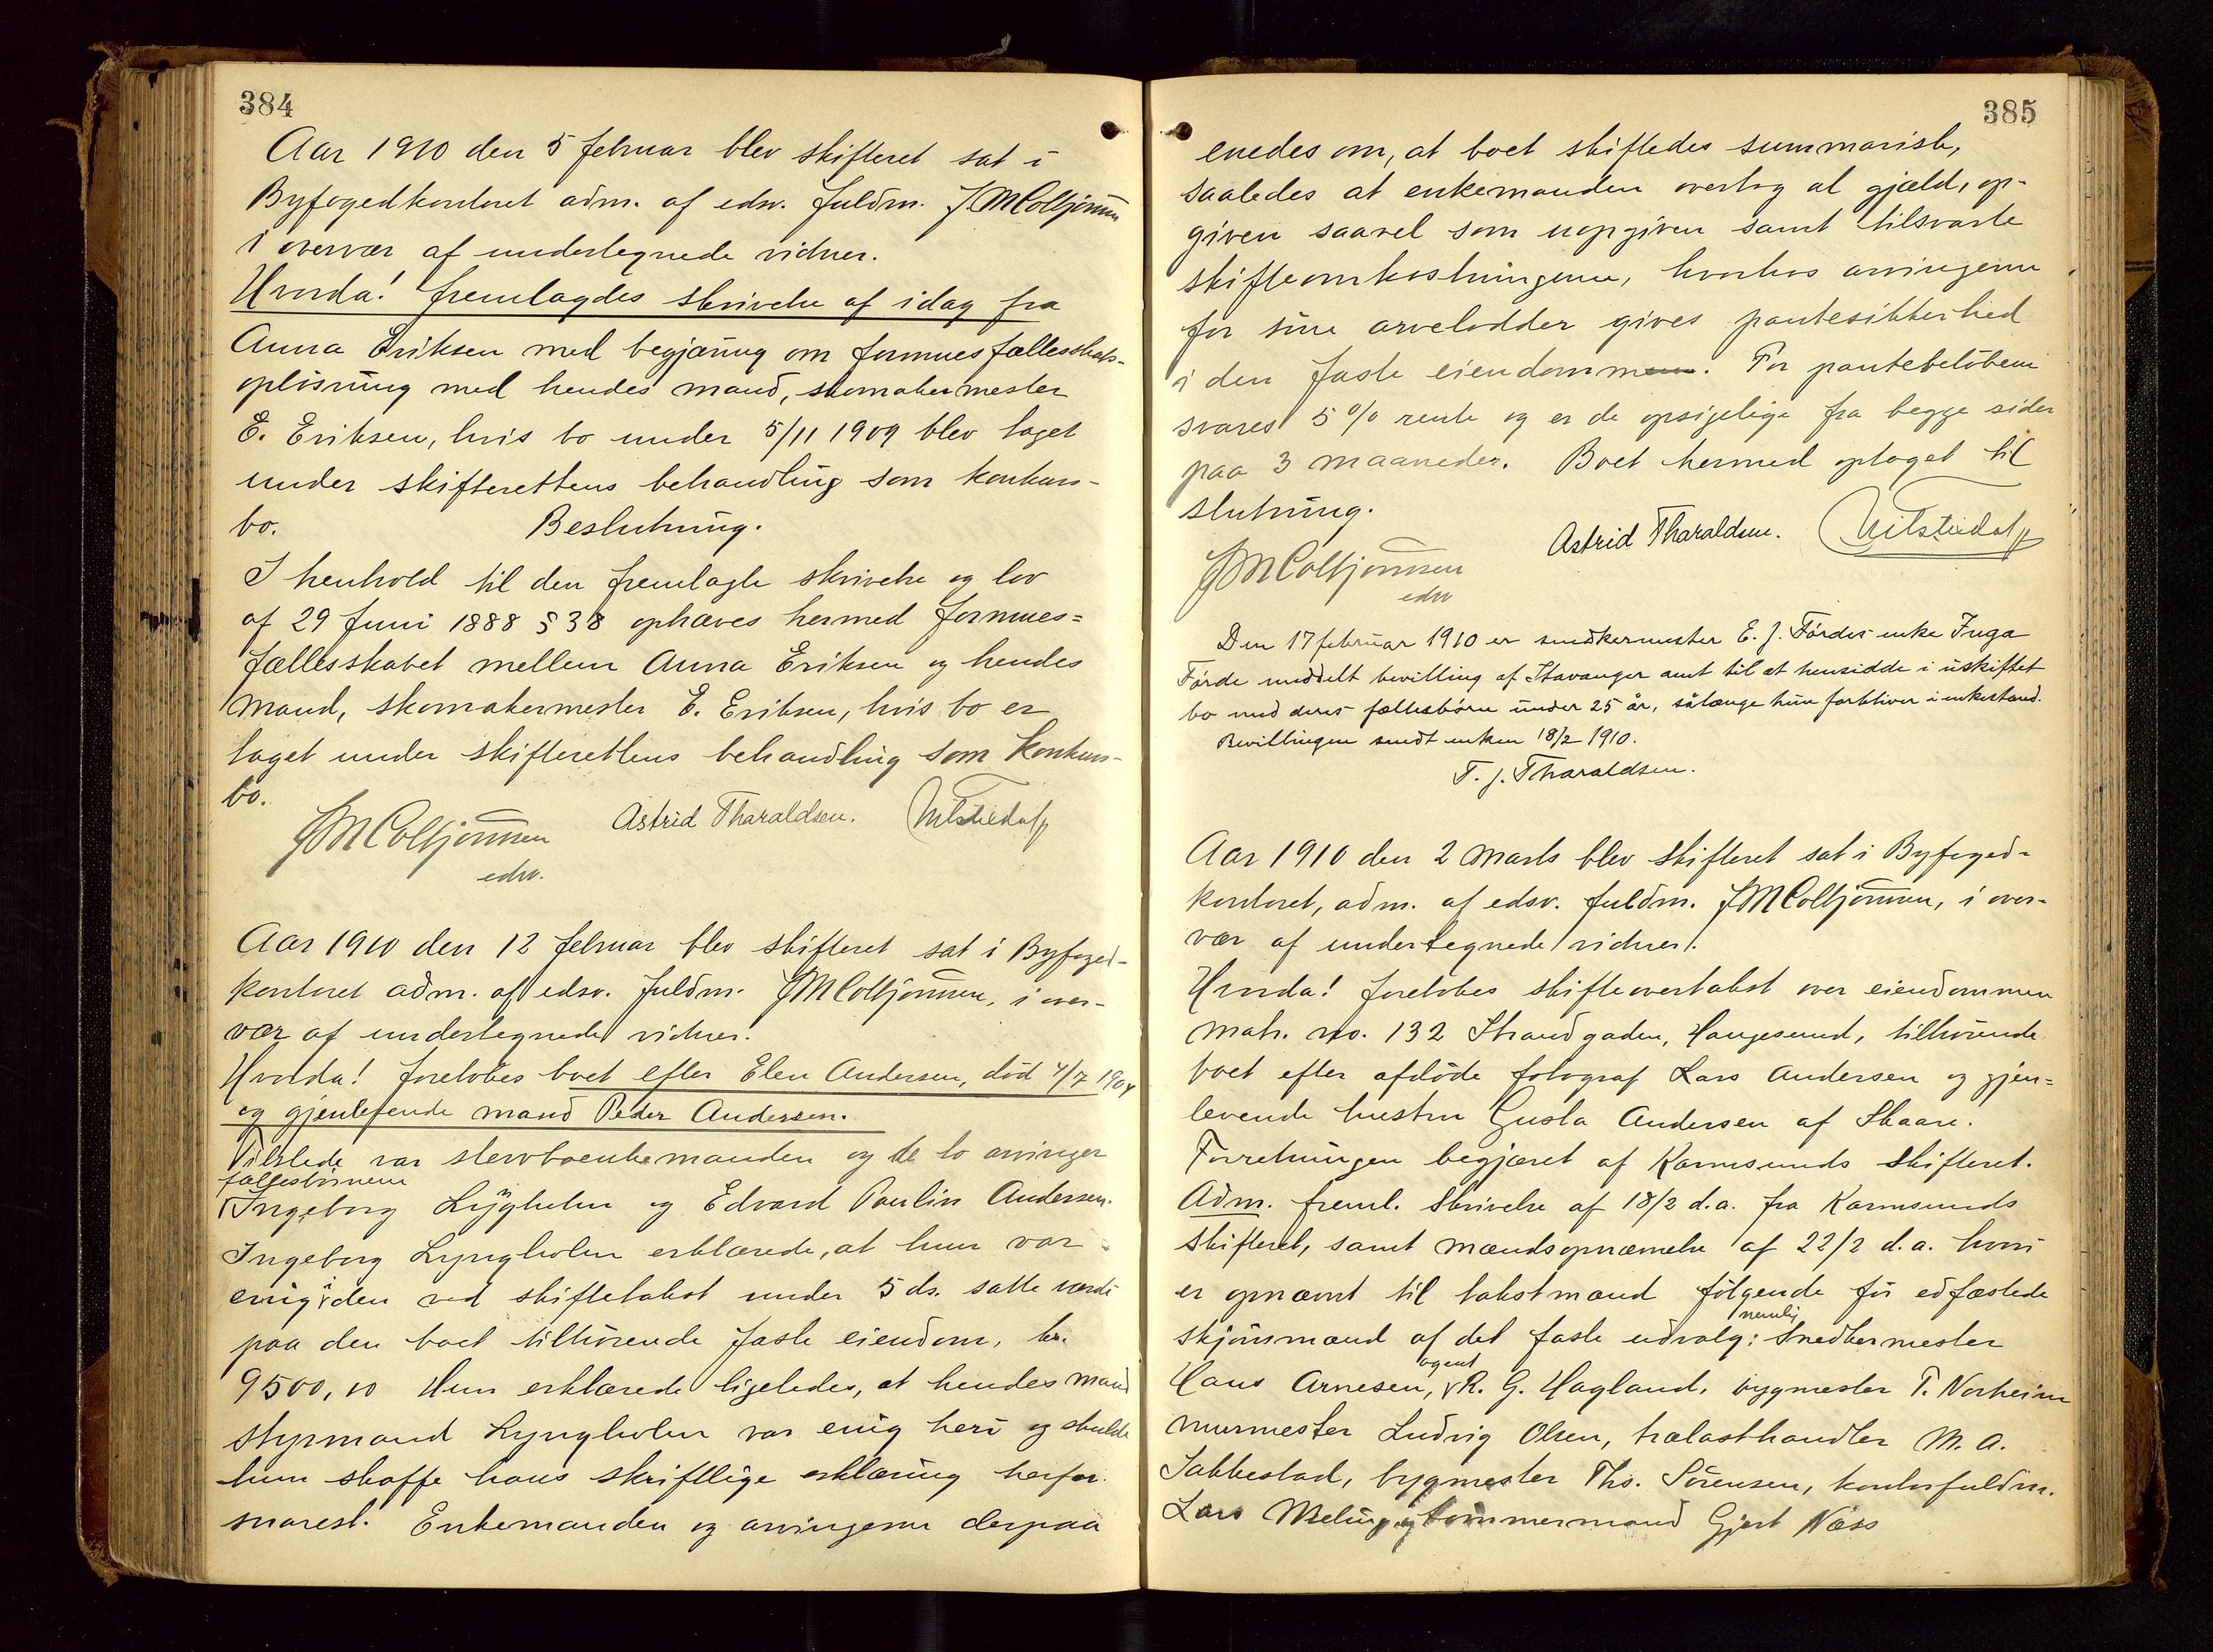 384
Aar 1910 den 5 februar blev skifteret sat i
Byfogedkontoret adm. af edsv. fuldm. J.M Colbjørnsen
i overvær af undertegnede vidner.
Hvorda! fremlagdes skrivelse af idag fra
Anna Eriksen med begjæring om formuesfællesskabs-
opløsning med hendes mand, skomakermester
E. Eriksen, hvis bo under 5/11 1909 blev taget
under skifterettens behandling som konkurs-
bo. Beslutning.
I henhold til den fremlagte skrivelse og lov
af 29 Juni 1888 § 38 ophæves hermed formues=
fællesskabet mellem Anna Eriksen og hendes
mand, skomakermester E. Eriksen, hvis bo er
taget under skifterettens behandling som konkurs-
bo.
JM Colbjørnsen Astrid Tharaldsen.
edsv.
Aar 1910 den 12 februar blev skifteret sat i Byfoged-
kontoret adm. af edsv. fuldm. JM Colbjørnsen, i over-
vær af undertegnede vidner.
Hvorda! foretoges boet efter Elen Andersen, död 4/7 1904
og gjenlevende mand Peder Andersen.
Tilstede var stervboenkemanden og de to arvinger
fællesbörnene
Ingeborg Lÿgholm og Edvard Paulin Andersen.
Ingeborg Lyngholm erklærede, at hun var
enig i den ved skiftetakst under 5 ds. satte værdi
paa den boet tilhörende faste eiendom, kr.
9500,00 Hun erklærede ligeledes, at hendes mand
styrmand Lyngholm var enig heri og skulde
hun skaffe hans skriftlige erklæring herfor
snarest. Enkemanden og arvingerne derpaa
385
enedes om, at boet skiftedes summarisk,
saaledes at enkemanden overtog al gjæld, op-
given saavel som uopgiven samt tilsvarte
skifteomkostningerne, hvorhos arvingerne
for sine arvelodder gives pantesikkerhed
i den faste eiendommen. For pantebelöbene
svares 5 % rente og er de opsigelige fra begge sider
paa 3 maaneder. Boet hermed optaget til
slutning.
Astrid Tharaldsen.
JM Colbjørnsen
edsv
Den 17 februar 1910 er snedkermester E. J. Fördes enke Inga
Förde meddelt bevilling af Stavanger amt til at hensidde i uskiftet
bo med deres fællesbörn under 25 år, sålænge hun forbliver i enkestand.
Bevillingen sendt enken 18/2 1910.
T. J. Tharaldsen.
Aar 1910 den 2 Marts blev skifteret sat i Byfoged-
kontoret, adm. af edsv. fuldm. JM Colbjørnsen, i over-
vær af undertegnede vidner.
Hvorda! foretoges skifteovertakst over eiendommen
Matr. no. 132 Strandgaden, Haugesund, tilhörende
boet efter afdöde fotograf Lars Andersen og gjen=
levende hustru Gusta Andersen af Skaare.
Forretningen begjæret af Karmsunds skifteret.
Adm. freml. skrivelse af 18/2 d.a. fra Karmsunds
skifteret, samt mandsopnæmelse af 22/2 d.a. hvori
er opnæmt til takstmænd fölgende för edfæstede
skjönsmænd af det faste udvalg: nemlig Snedkermester
Hans Arnesen, agent R. G. Hagland, bygmester T. Norheim
murmester Ludvig Olsen, trælasthandler M. A.
Sakkestad, bygmester Ths. Sörensen, kontorfuldm.
Lars Meling og tömmermand Gjert Næss